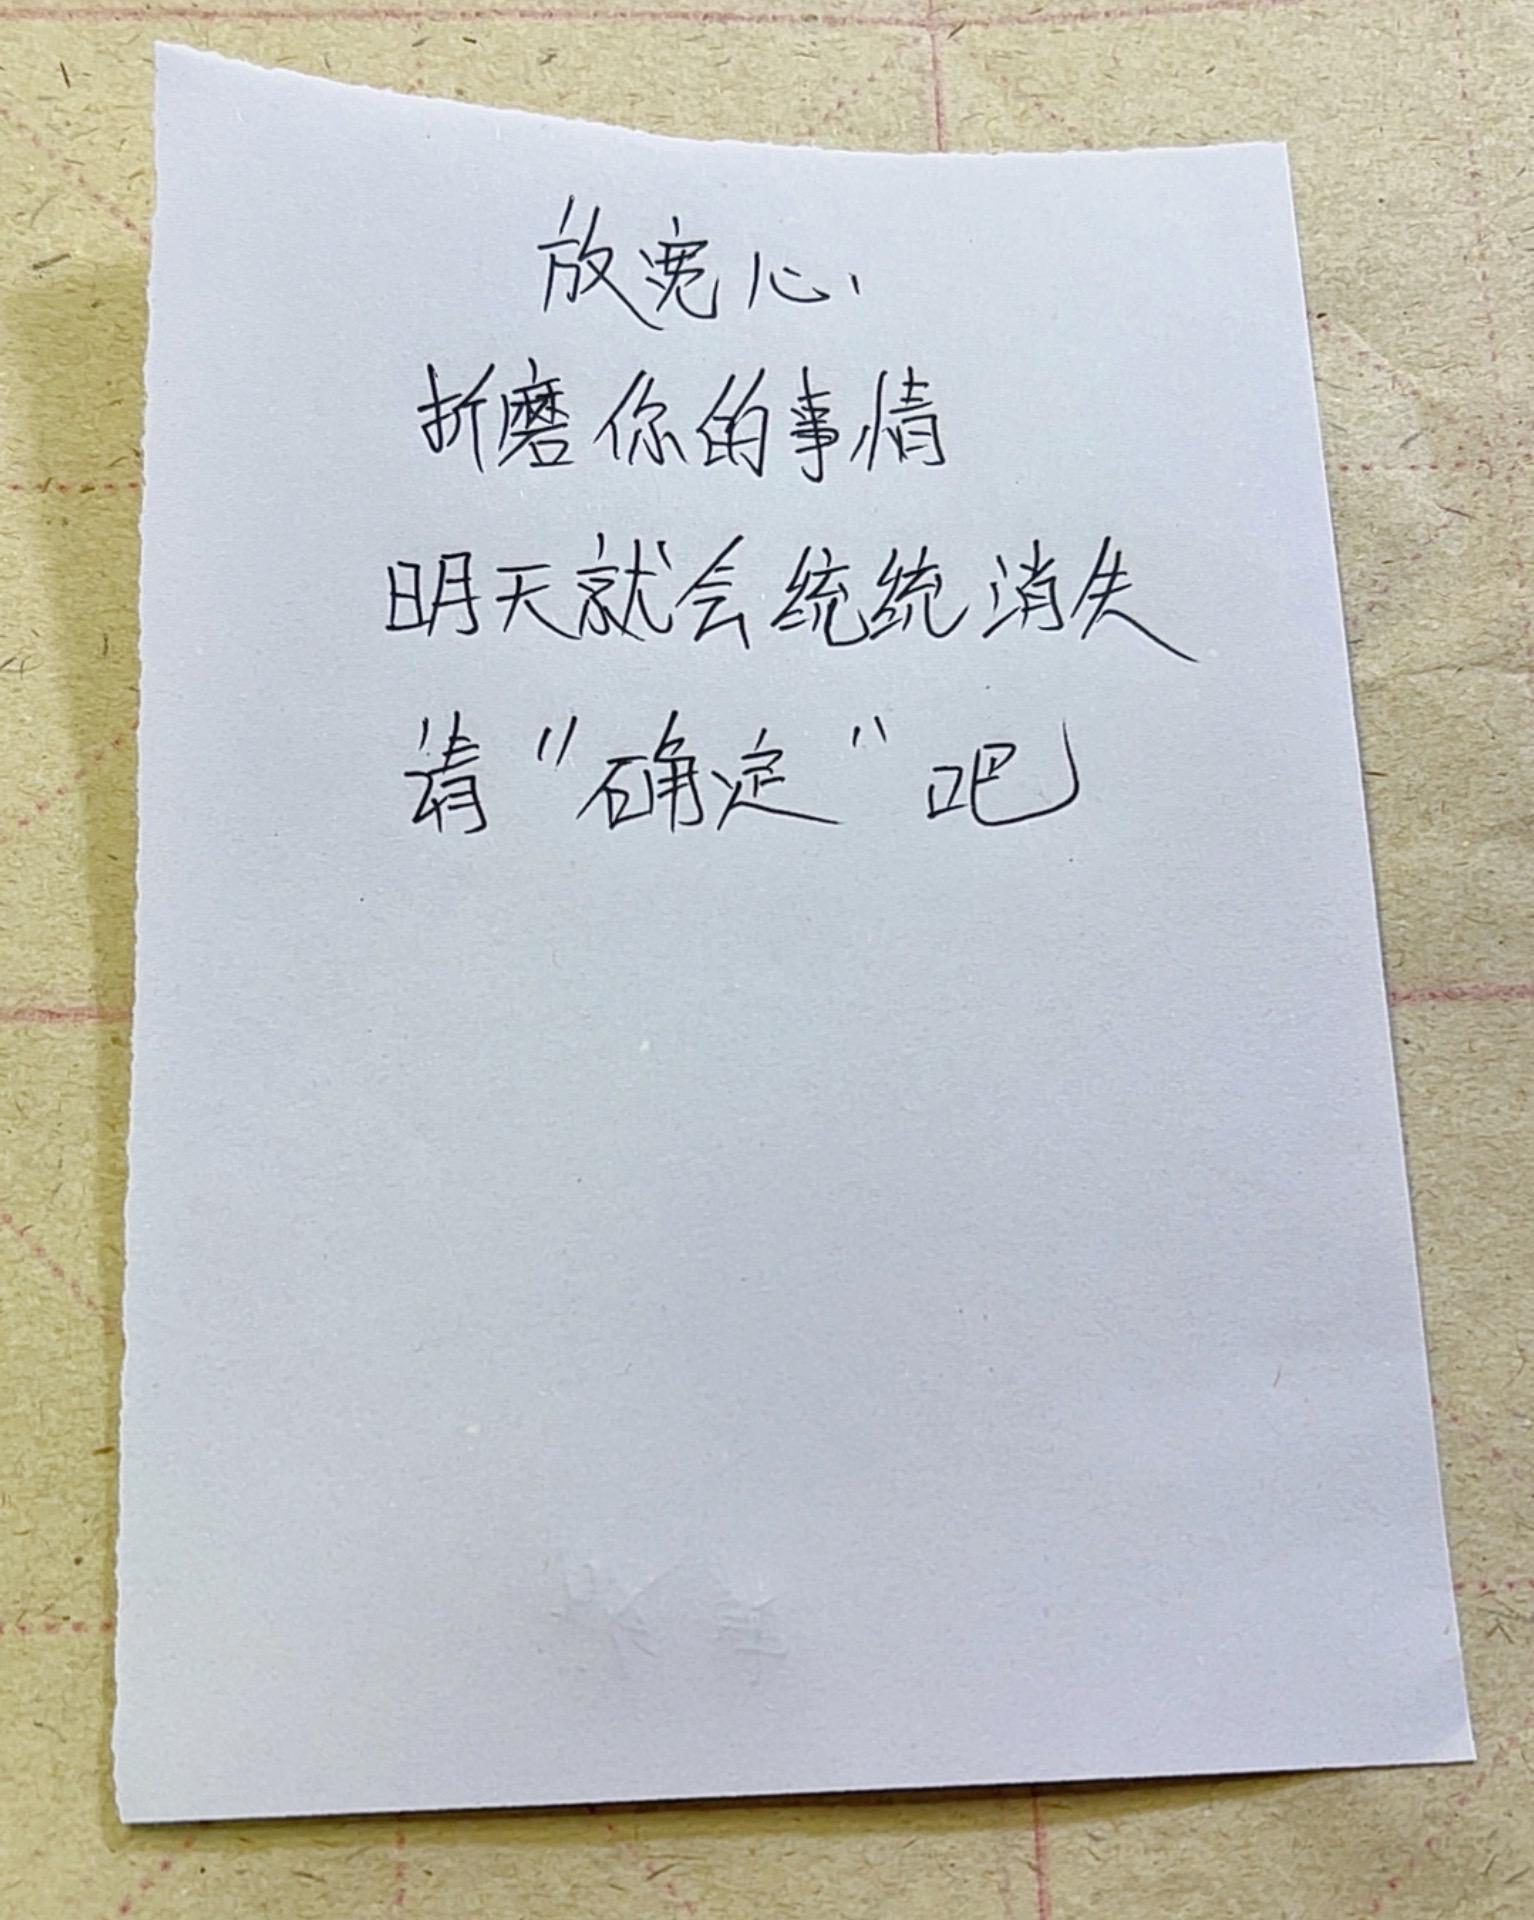 放宽心、
折磨你的事情
明天就会统统消失
请“确定”吧